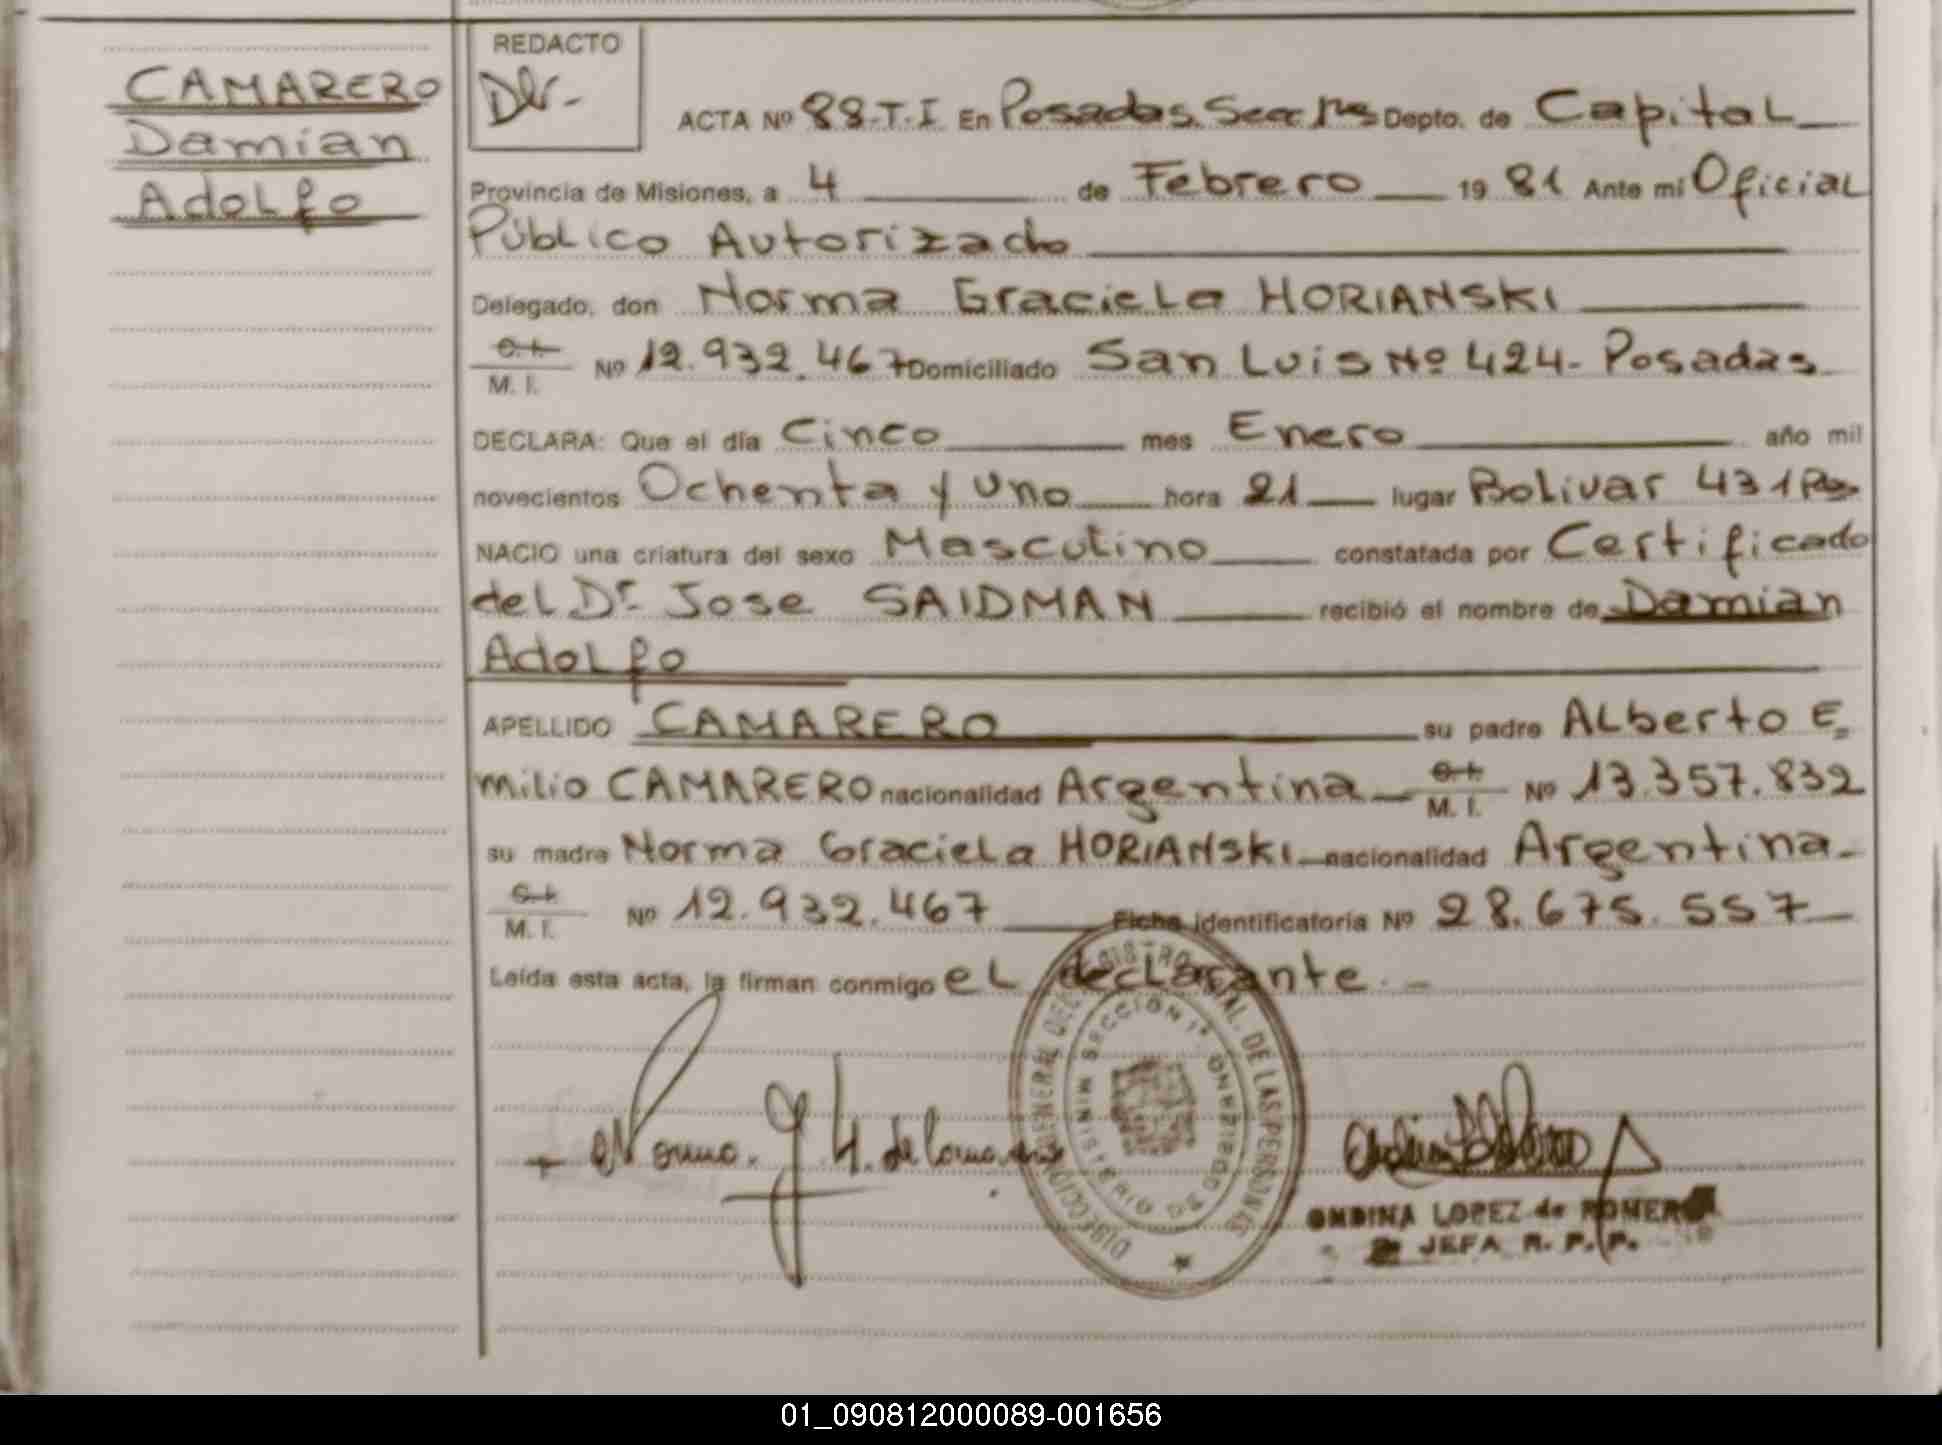 REDACTO
CAMARERO
Damian
Adolfo
ACTA Nº 88-T-I En Posadas, Secc 1ra Depto. de Capital
Provincia de Misiones, a 4 de Febrero 19 81 Ante mi Oficial
Público Autorizado
Delegado, don Norma Graciela HORIANSKI
C. I.
M. I. Nº 12.932.467 Domiciliado San Luis Nº 424- Posadas
DECLARA: Que el día Cinco mes Enero año mil
novecientos Ochenta y Uno hora 21 lugar Bolivar 431 Pdas
NACIO una criatura del sexo Masculino constatada por Certificado
del Dr. Jose SAIDMAN recibió el nombre de Damian
Adolfo
APELLIDO CAMARERO su padre Alberto E=
milio CAMARERO nacionalidad Argentina C. I. M. I. Nº 13.357.832
su madre Norma Graciela HORIANSKI nacionalidad Argentina-
C. I.
M. I. Nº 12.932.467 Ficha identificatoria Nº 28.675.557
Leída esta acta, la firman conmigo el declarante.-
Norma. G. H. de Camarero
DIRECCION GENERAL DEL REGISTRO PROVINCIAL DE LAS PERSONAS
MINISTERIO DE GOBIERNO SECCION 1ª
ONDINA LOPEZ de ROMERO
JEFA R. P. P.
01_090812000089-001656